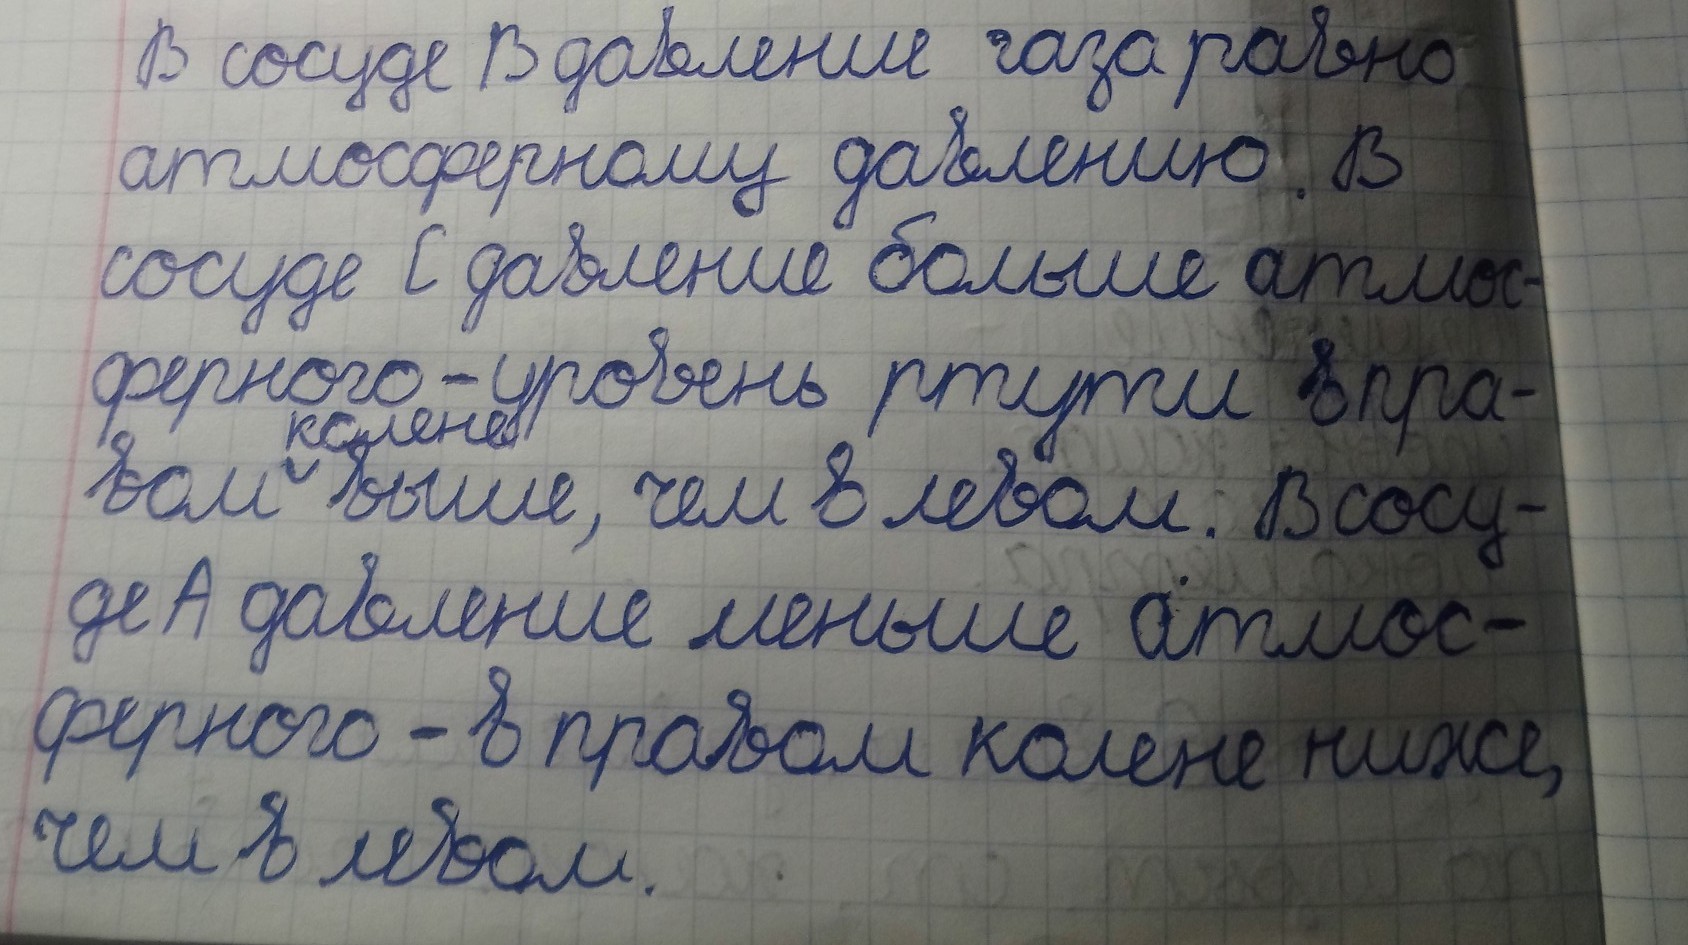 В сосуде В давление газа равно
атмосферному давлению. В
сосуде С давление больше атмос-
ферного - уровень ртути в пра-
колене
вом выше, чем в левом. В сосу-
де А давление меньше атмос-
ферного - в правом колене ниже,
чем в левом.